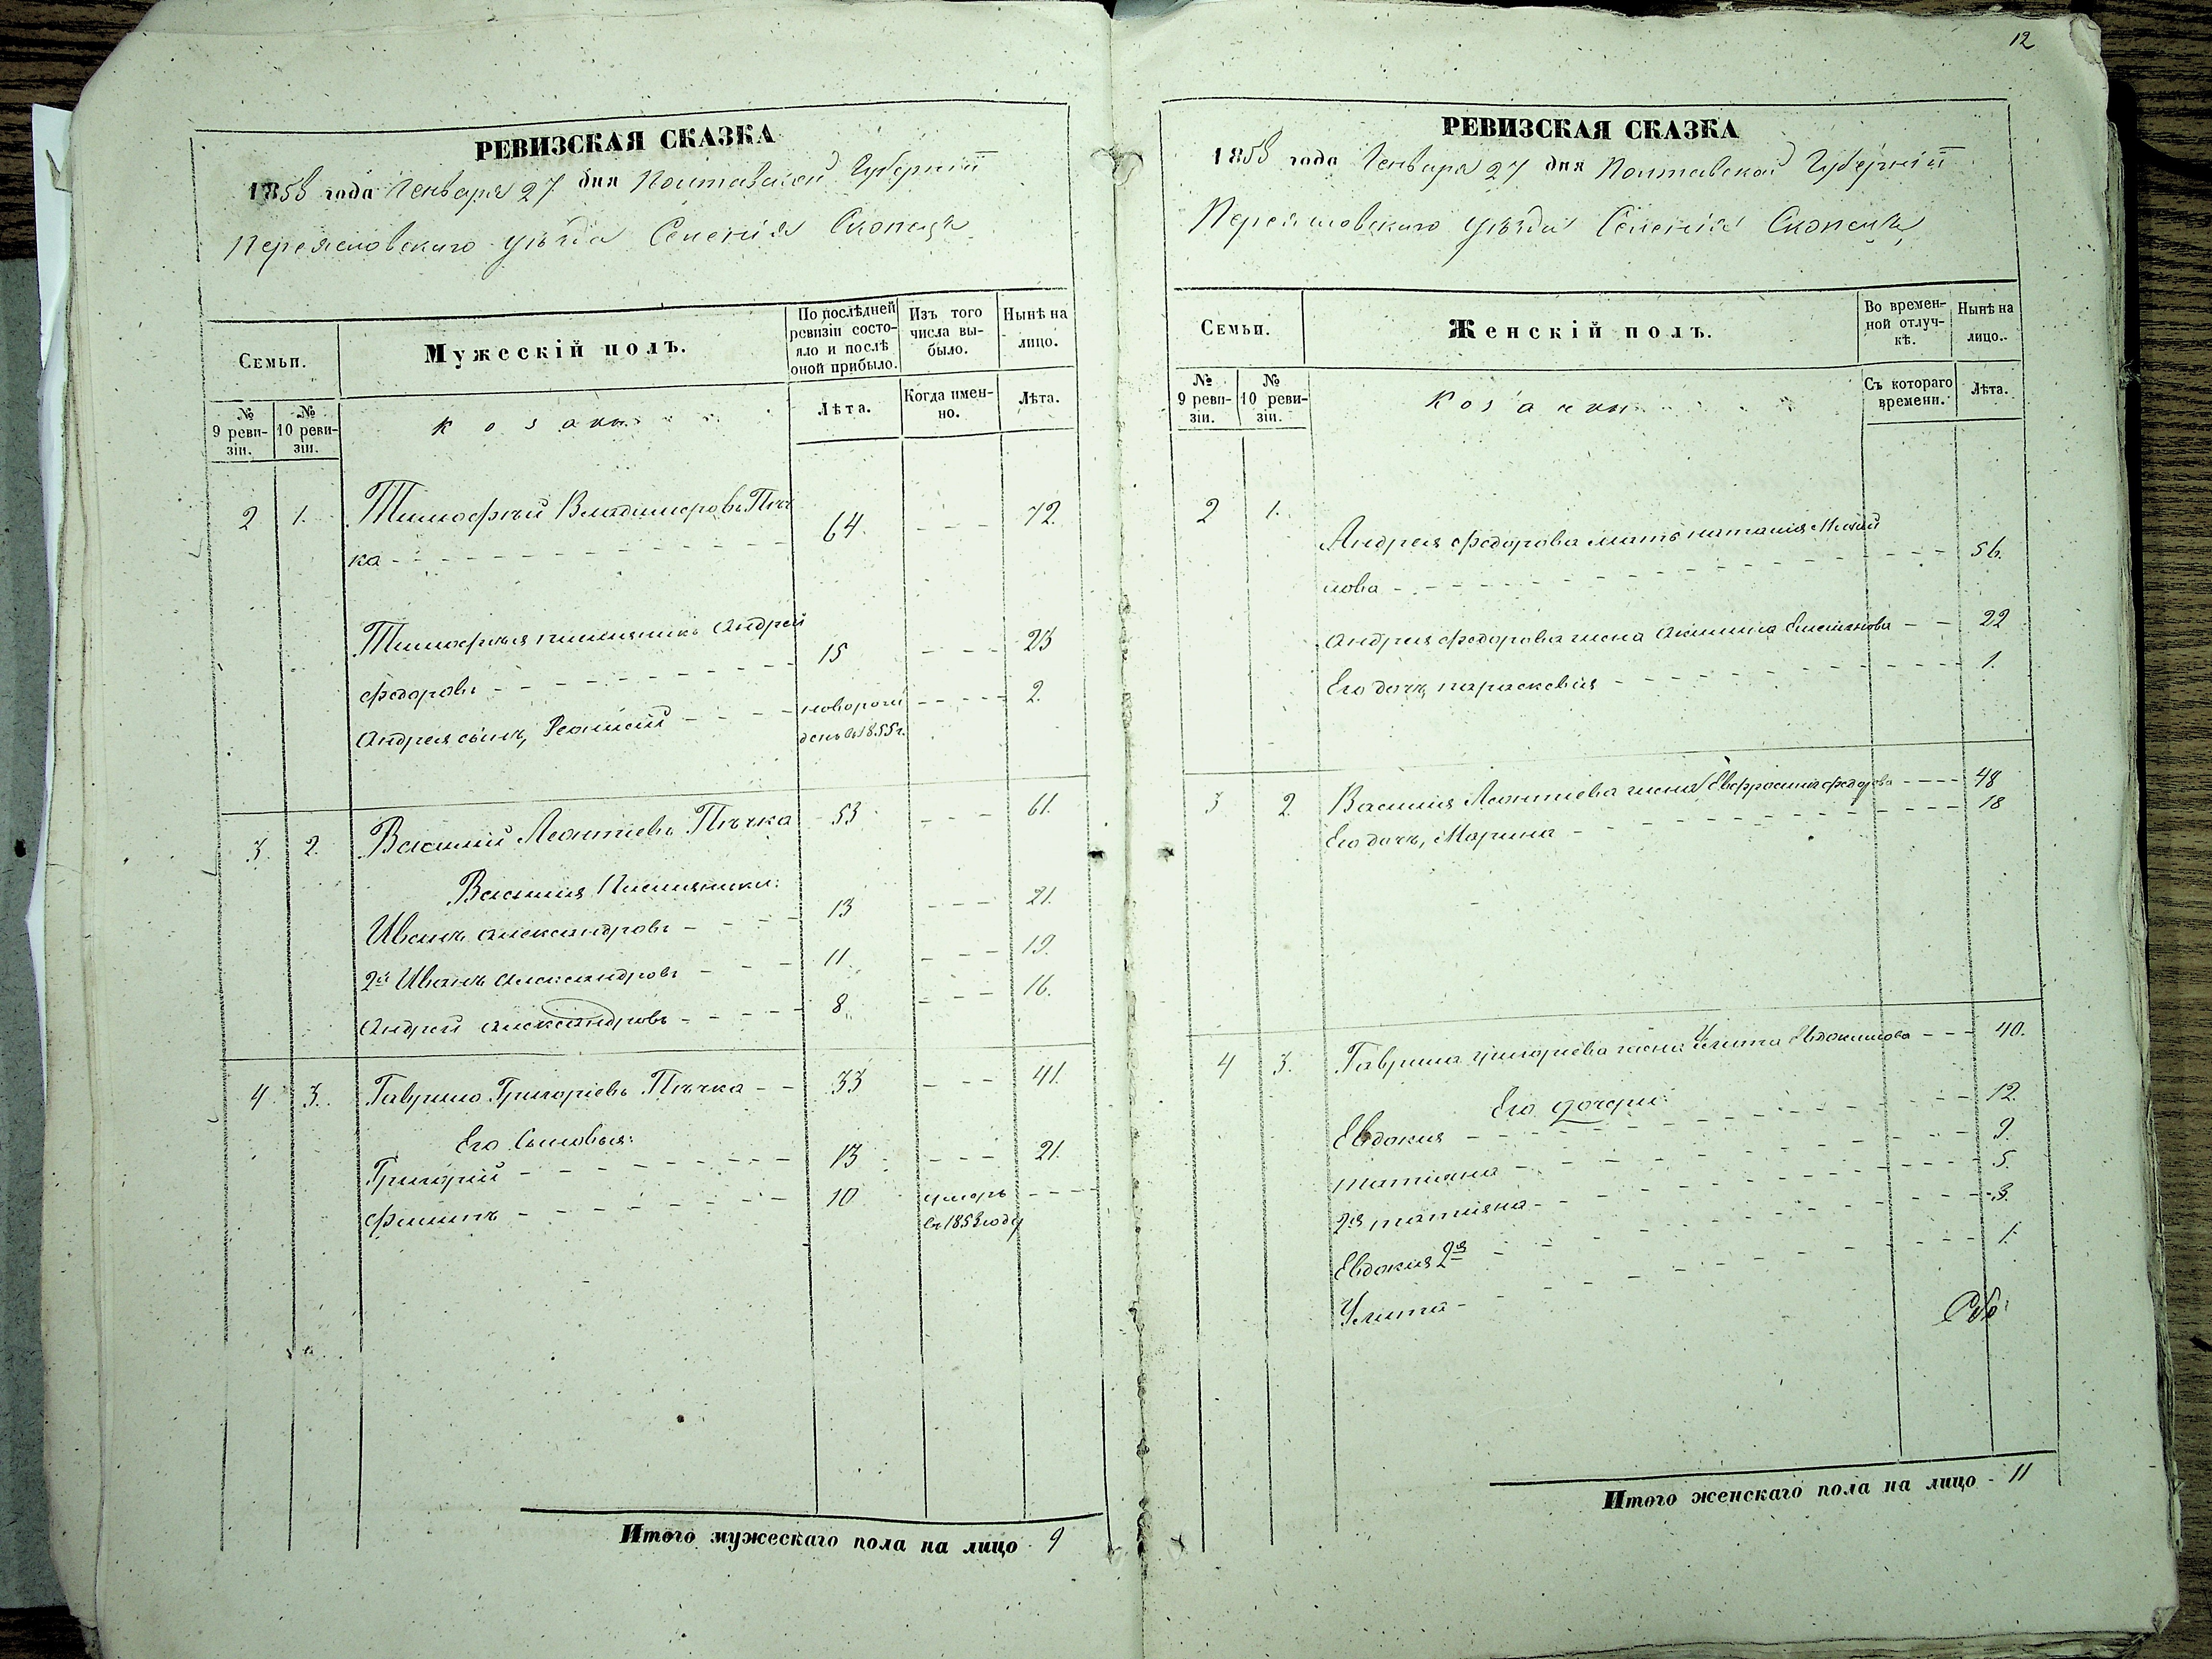 12
РЕВИЗСКАЯ СКАЗКА
1858 года Генваря 27 дня Полтавской Губерніи
Переясловскаго уѣзда Селенія Скопецъ
Семьи.
Мужескій полъ.
По послѣдней ревизіи состояло и послѣ оной прибыло.
Изъ того числа выбыло.
Нынѣ на лицо.
№ 9 ревизіи.
№ 10 ревизіи.
Козаки
Лѣта.
Когда именно.
Лѣта.
2 1. Тимофѣй Владимеровъ Пѣч
ка - - - 64 - - - 72.
Тимофѣя племянникъ Андрей
Федоровъ - - - 15 - - - 23
Андрея сынъ, - - - новорож
денъ въ 1855 г. - - - 2.
3. 2. Василий Леонтіевъ Пѣчка 53 - - - 61.
Василия Племянники:
Иванъ Александровъ - - - 13 - - - 21.
2й Иванъ Александровъ - - - 11 - - - 19.
Андрей Александровъ - - - 8 - - - 16.
4. 3. Гаврило Григоріевъ Пѣчка - - 33 - - - 41.
Его Сыновья:
Григорий - - - 13 - - - 21.
Филипъ - - - 10 умеръ - - -
въ 1853 году
Итого мужескаго пола на лицо 9
РЕВИЗСКАЯ СКАЗКА
1858 года Генваря 27 дня Полтавской Губерніи
Переясловскаго уѣзда Селенія Скопецъ
Семьи.
Женскій полъ.
Во временной отлучкѣ.
Нынѣ на лицо.
№ 9 ревизіи.
№ 10 ревизіи.
Козачки
Съ котораго времени.
Лѣта.
2 1. Андрея Федорова мать наталия
нова - - - 56.
Андрея Федорова жена Акилина - - 22
Его дочь параскевія - - - 1.
3 2. Василия Леонтиева жена Евфросиния Федорова - - - 48
Его дочь, Марина - - - 18
4 3. Гаврила Григориева жена Улита Евдокимова - - - 40.
Его дочери:
Евдокия - - - 12.
татияна - - - 9.
2я татияна - - - 5.
Евдокия 2я - - - 3.
Улита - - - 1.
Итого женскаго пола на лицо - 11